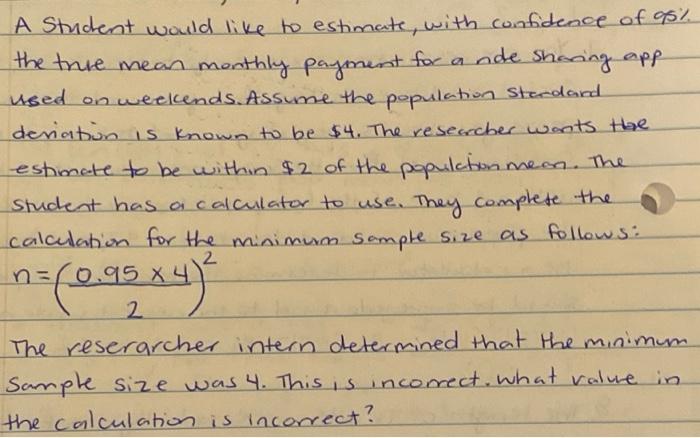 A Student would like to estimate, with confidence of 95%
the true mean monthly payment for a ride sharing app
used on weekends. Assume the population standard
deviation is known to be $4. The researcher wants the
estimate to be within $2 of the population mean. The
student has a calculator to use. They complete the
calculation for the minimum sample size as follows:
n=(0.95 x 4 / 2)^2
The reserarcher intern determined that the minimum
Sample size was 4. This is incorrect. what value in
the calculation is incorrect?